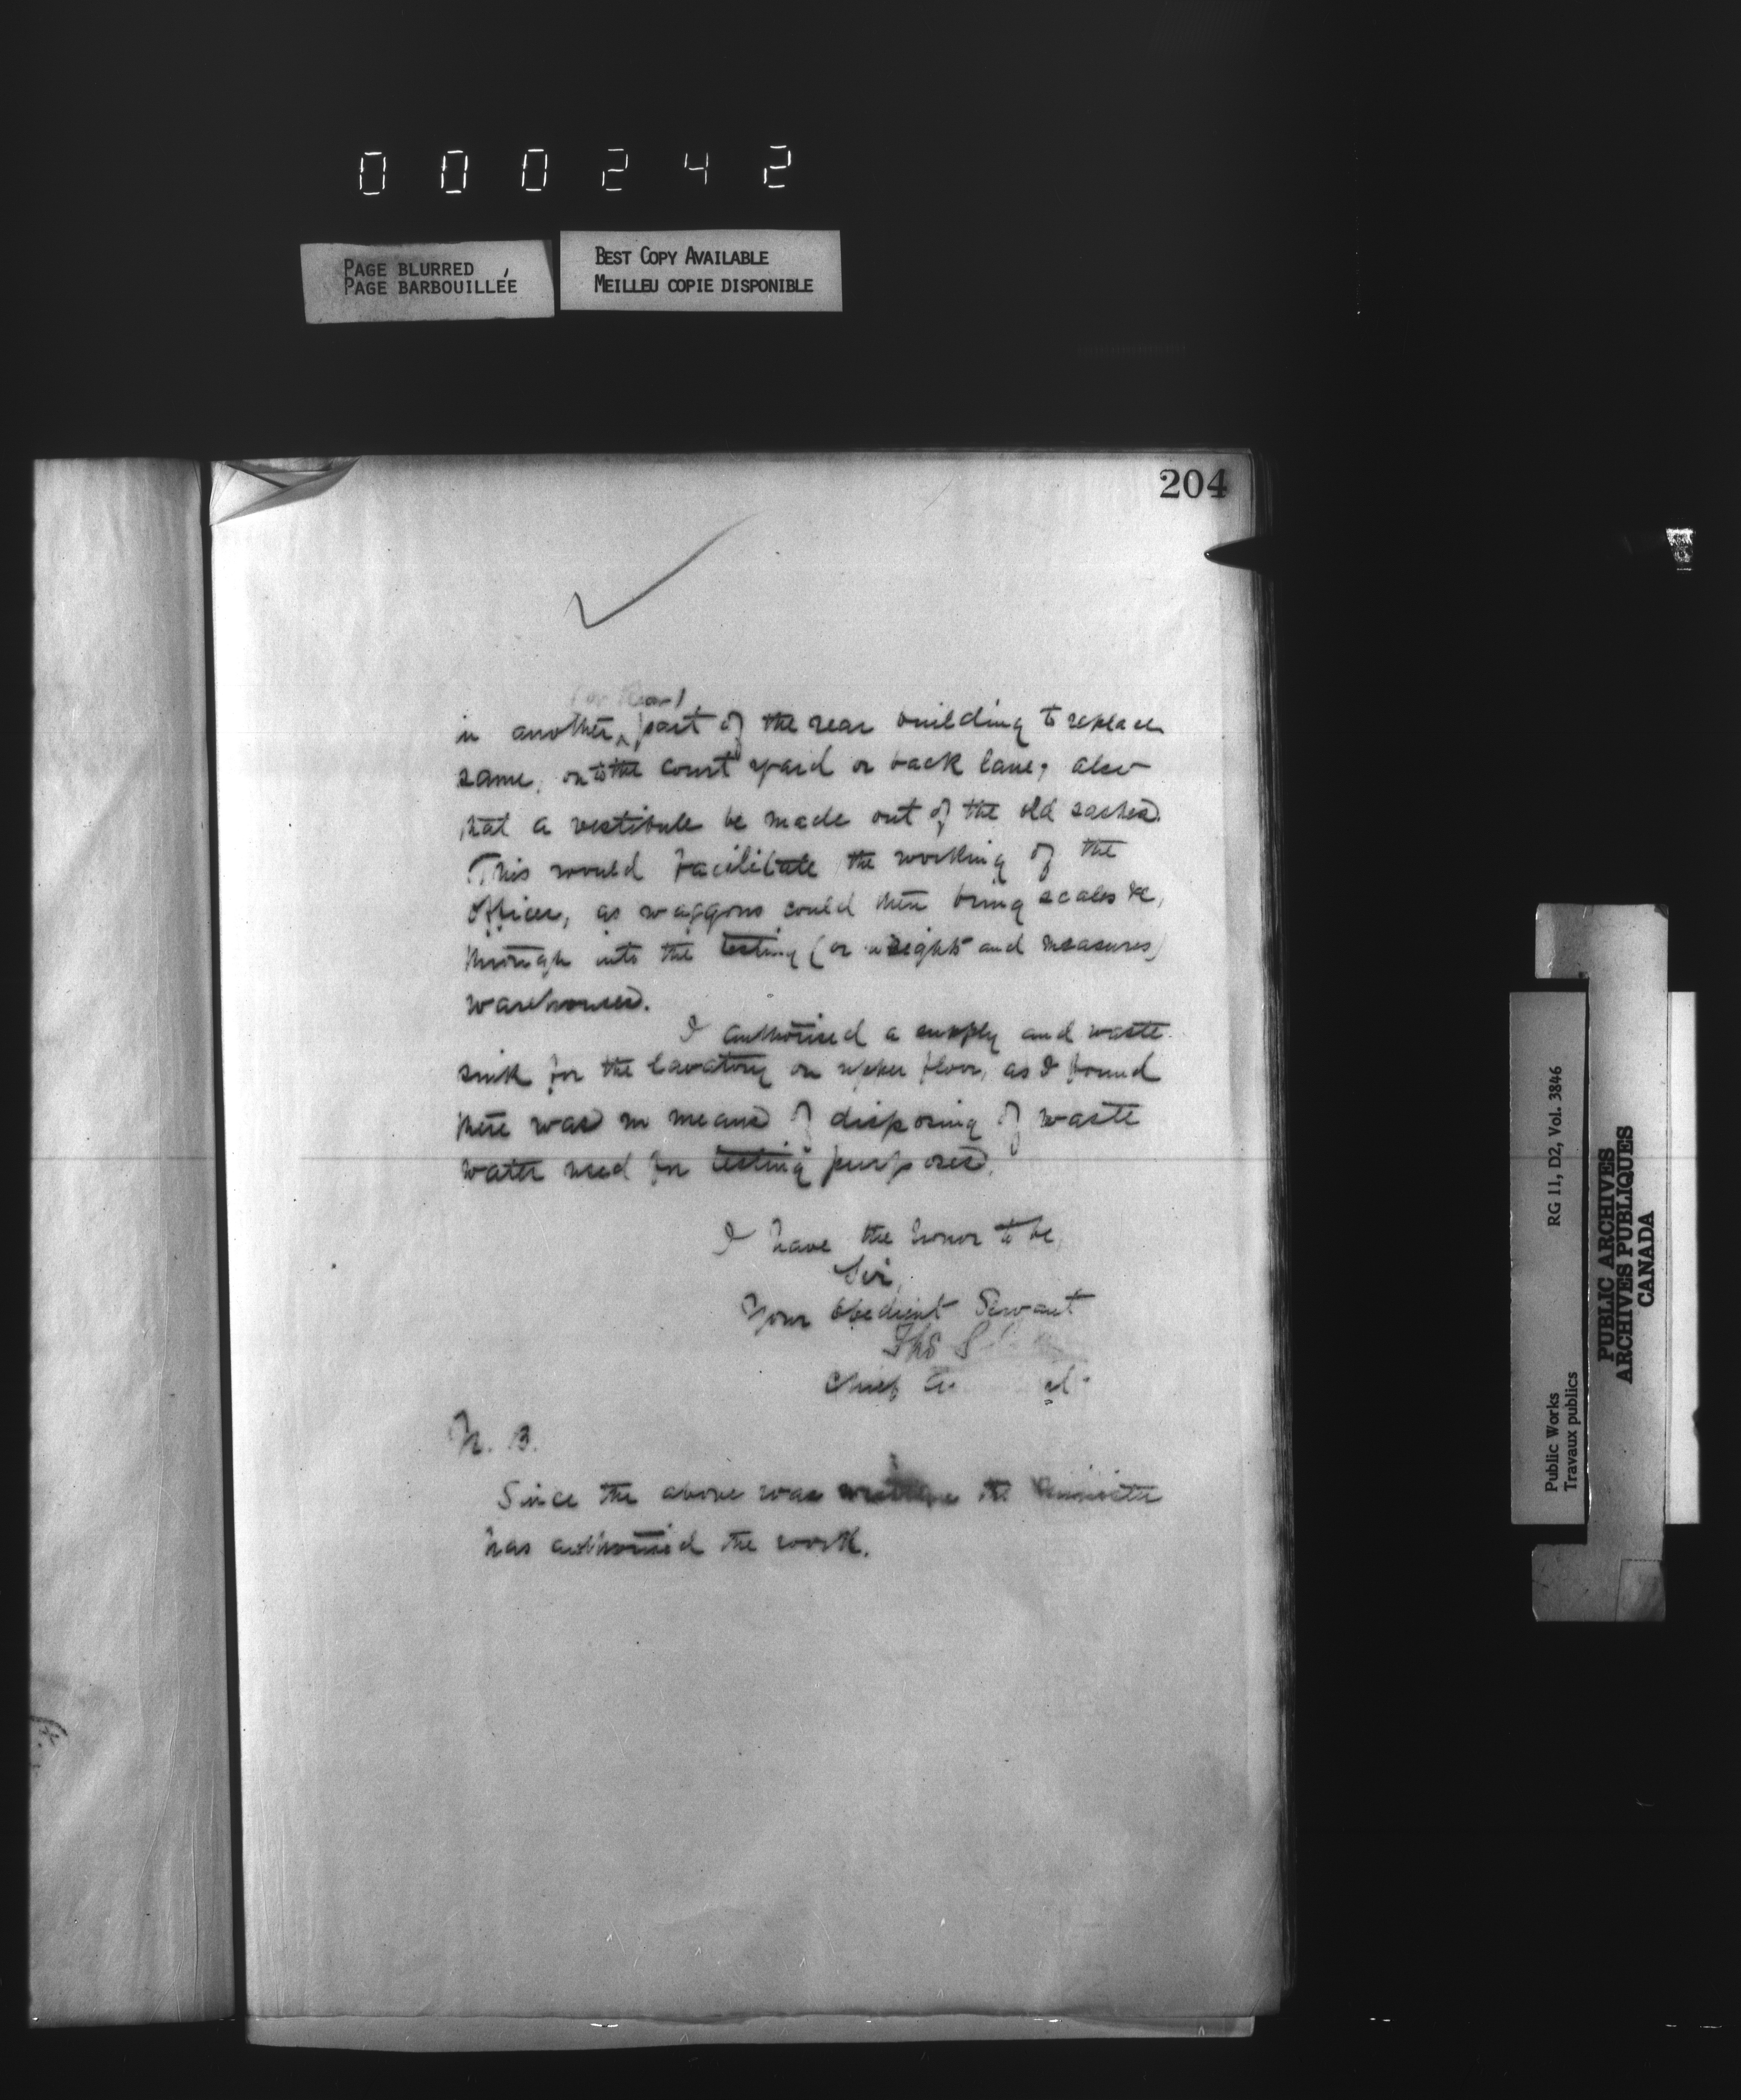 000242
PAGE BLURRED
PAGE BARBOUILLÉE
BEST COPY AVAILABLE
MEILLEU COPIE DISPONIBLE
204
in another part of the rear building to replace
same, on to the court yard or back lane, also
that a vestibule be made out of the old sashes.
This would facilitate the working of the
Offices, as waggons could then bring scales &c,
through into the testing (or weights and measures)
warehouses.
I authorised a supply and waste
sink for the lavatory on upper floor, as I found
there was no means of disposing of waste
water used for testing purposes.
I have the honor to be,
Sir,
Your obedient Servant
Thos
Chief
N. B.
Since the above was written the Minister
has authorised the work.
Public Works
Travaux publics
RG 11, D2, Vol. 3846
PUBLIC ARCHIVES
ARCHIVES PUBLIQUES
CANADA